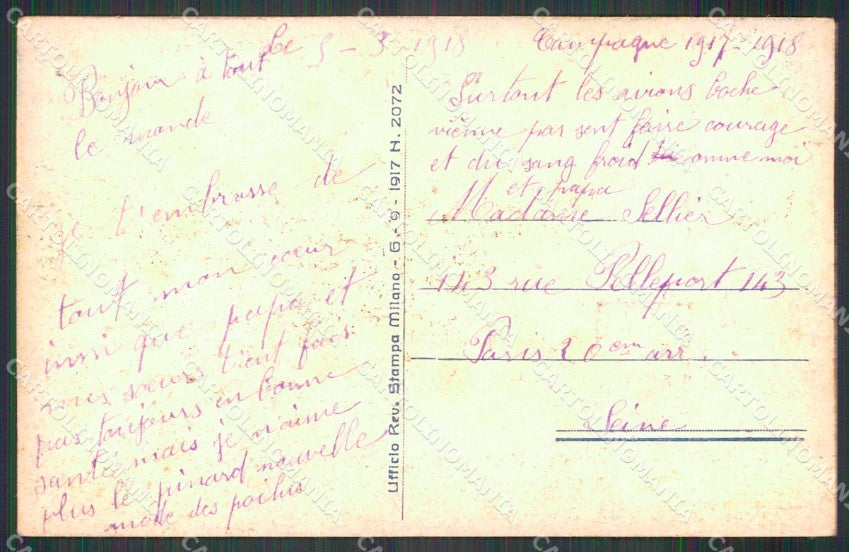 Le 5 - 3 1918
Bonjour à tout
le monde
je t'embrasse de
tout mon coeur
insi que papa et
mes soeurs t'ent fais
pas toujours en bonne
santé mais je n'aime
plus le pinard nouvelle
mode des poilus
Ufficio Rev. Stampa Milano - 6 - 9 - 1917 N. 2072
Campagne 1917-1918
Surtout les avions boche
vienne pas sent faire courage
et du sang froid omme moi
et papa
Madame Sellier
143 rue Pelleport 143
Paris 20 em arr.
Seine
CARTOLINOMANIA